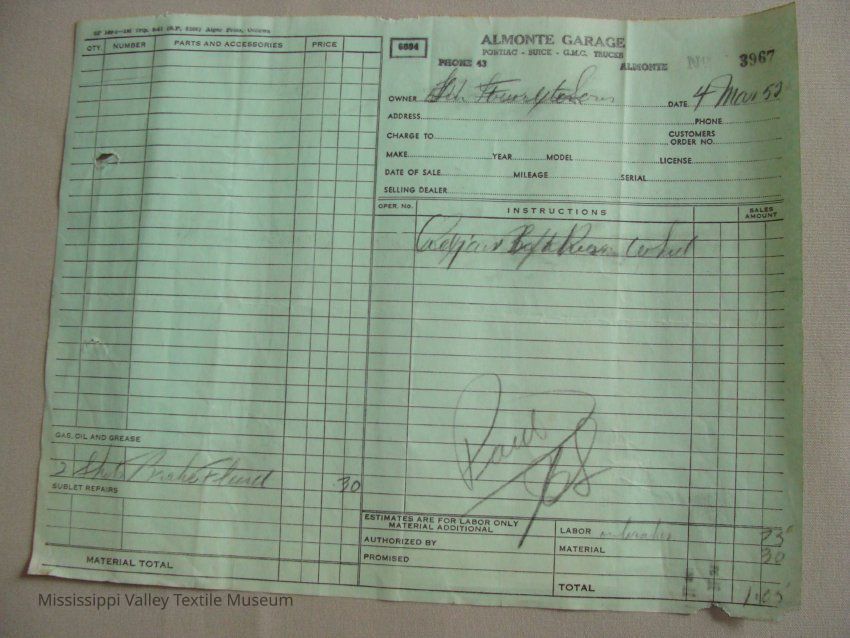 ALMONTE GARAGE
PONTIAC - BUICE - G.M.C. TRUCKS
PHONE 43 ALMONTE
6694
3967
OWNER
DATE 4 Mar 52
ADDRESS PHONE
CHARGE TO CUSTOMERS ORDER NO.
MAKE YEAR MODEL LICENSE
DATE OF SALE MILEAGE SERIAL
SELLING DEALER
QTY. NUMBER PARTS AND ACCESSORIES PRICE
OPER. No. INSTRUCTIONS SALES AMOUNT
Left Rear Wheel
Paid
GAS, OIL AND GREASE
2 Brake Fluid 30
SUBLET REPAIRS
MATERIAL TOTAL
ESTIMATES ARE FOR LABOR ONLY
MATERIAL ADDITIONAL
AUTHORIZED BY
PROMISED
LABOR 75
MATERIAL 30
TOTAL 1.05
Mississippi Valley Textile Museum